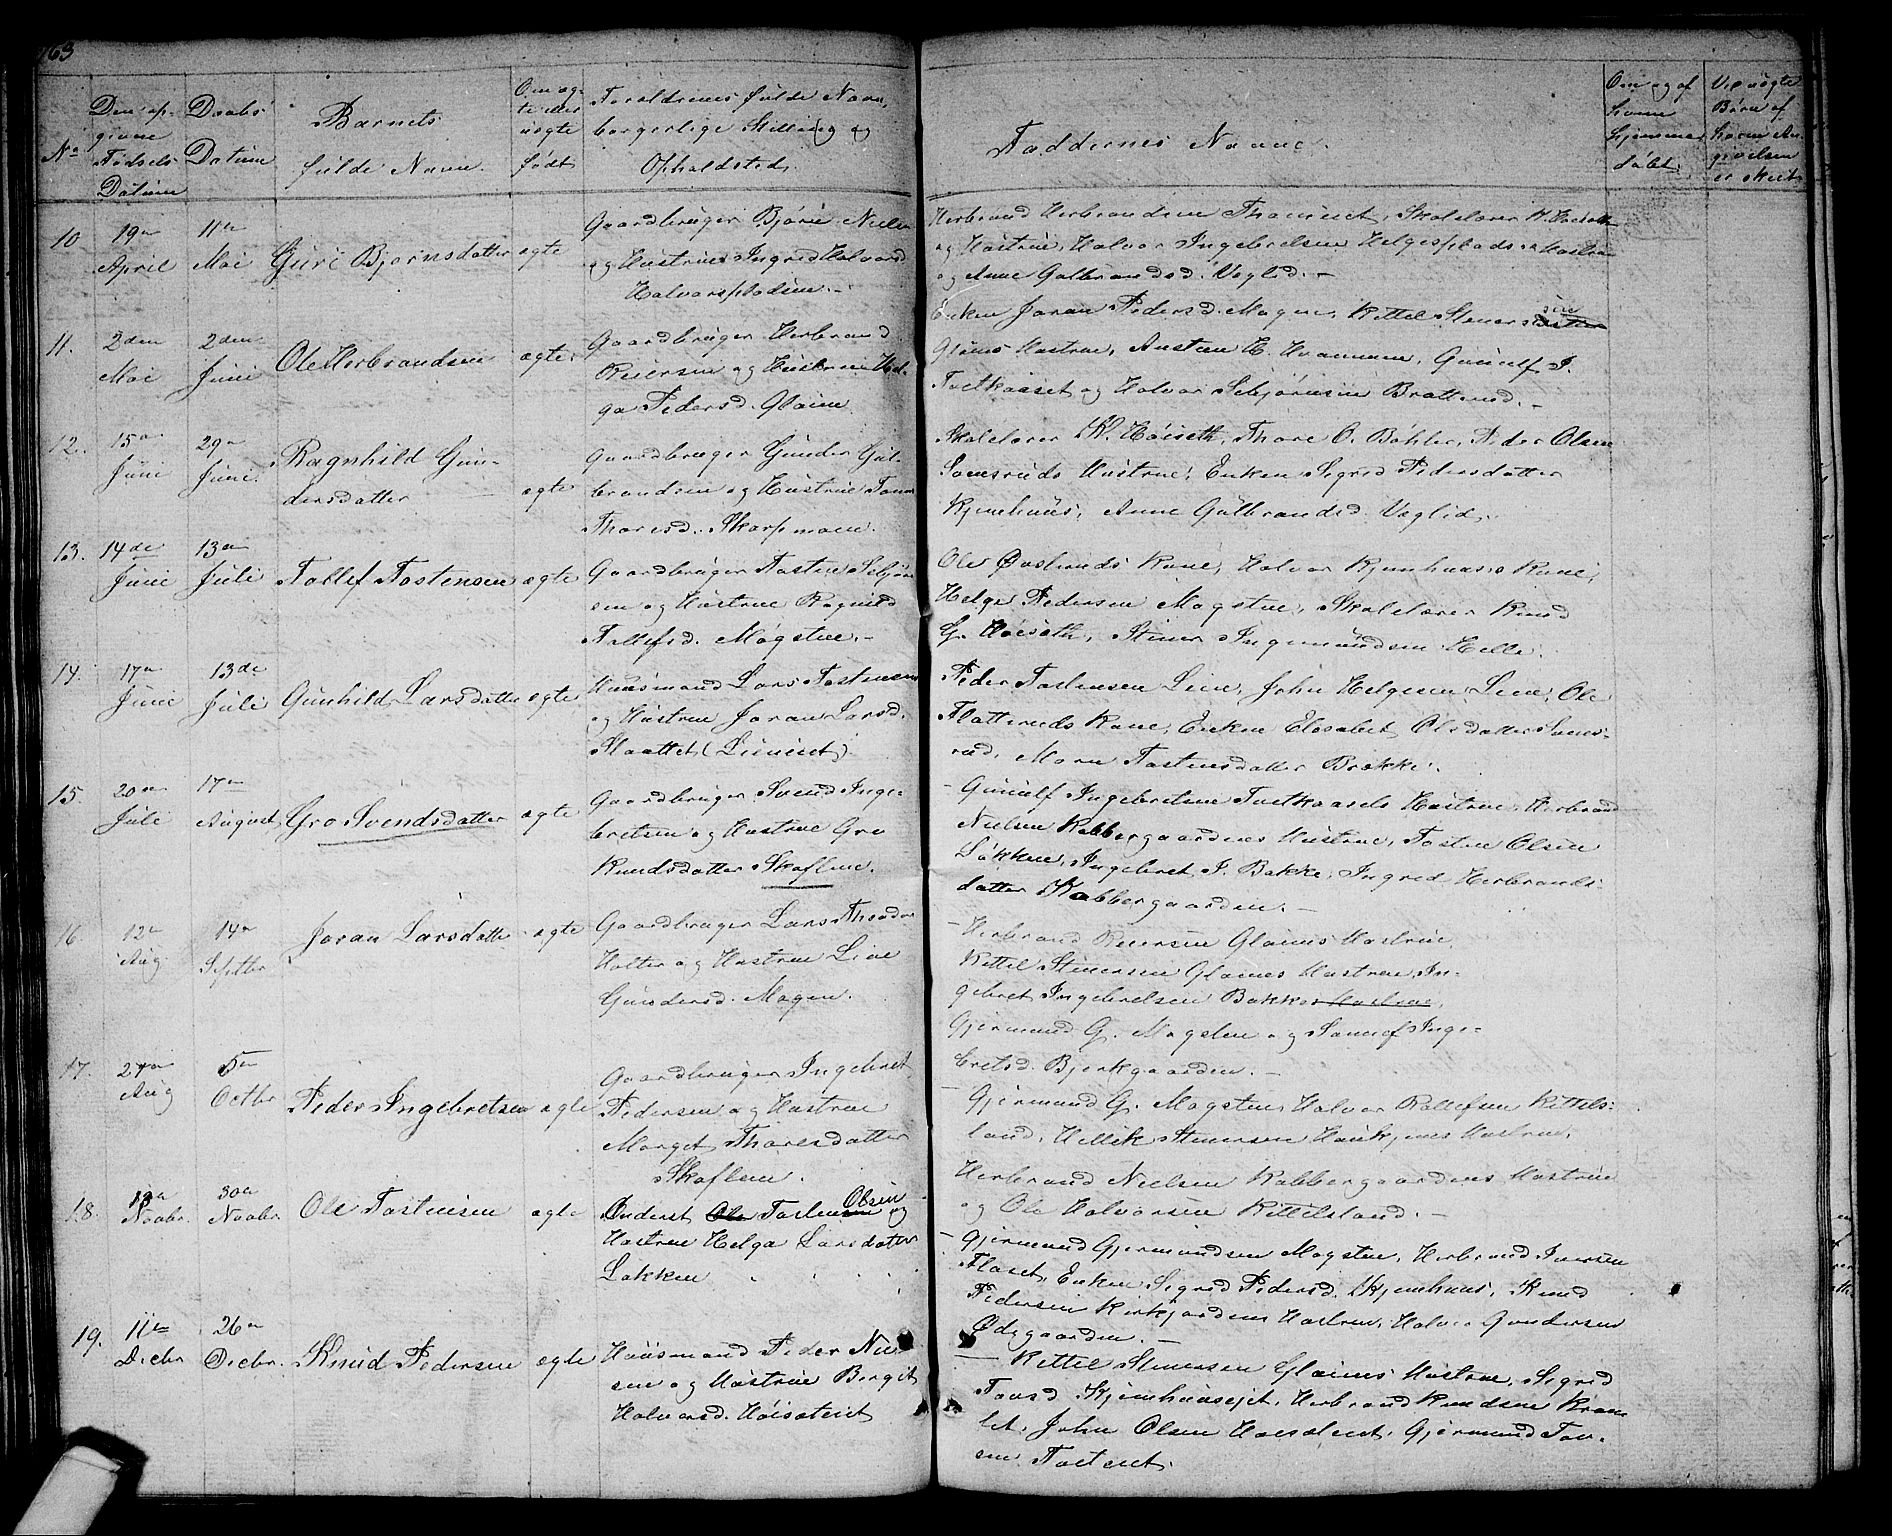 163
No
Den op-
givne
Fødsels
Datum
Daabs
Datum
Barnets
fulde Navn.
Om æg-
te eller
uægte
født
Foreldrenes fulde Navn,
borgerlige Stilling og
Opholdsted.
Faddernes Navne.
Om og af
hvem
hjemme
døbt
Ved uægte
Børn af
hvem An-
givelsen
er skeet
10
19n
April
11n
Mai
Guri Bjørnsdatter
ægte
Gaardbruger Bjørn Nielsen
og Hustrue Ingrid Halvorsd
Halvorspladsen.-
Herbrand Herbrandsen Skolelærer K. Høiseth
og Hustrue, Halvor Ingebretsen Helgespladsen Hustrue
og Anne Gulbrandsd. Væglid.-
11.
2den
Mai
2den
Juni
Ole Herbrandsen
ægte
Gaardbruger Herbrand
Reiersen og Hustrue Hel-
ga Pedersd. Glaim
Enken Joran Pedersd. Mogen, Kittel Stenersdatter
sen
Glaims Hustrue, Austen H. Gunulf I.
Toetkaaset og Halvor Sebjørnsen Bratterud.-
12.
15n
Juni
29n
Juni
Ragnhild Gun-
dersdatter
ægte
Gaardbruger Gunder Gul-
brandsen og Hustrue Tone
Thoresd. Skarpmoen.
Skolelærer K. Høiseth, Thore O. Bøhler, Peder Olsen
Sønsteruds Hustrue, Enken Sigrid Pedersdatter
Kjemhuus, Anne Gulbrandsd. Væglid.
13.
14de
Juni
13n
Juli
Tollef Tostensen
ægte
Gaardbruger Tosten Sebjørn
sen og Hustrue Ragnild
Tollefsd. Mogstue.-
Ole Øvslunds Kone, Halvor Kjemhuus's Kone,
Helge Pedersen Mogstue, Skolelærer Knud
G. Høiseth, Stener Ingemundsen Helle.
14.
17n
Juni
13de
Juli
Gunhild Larsdatter
ægte
Huusmand Lars Tostensen
og Hustrue Joran Larsd.
Slaattet (Liiniset)
Peder Tostensen Liin, John Helgesen Liin, Ole
Flatteruds Kone, Enken Elisabet Olsdatter Svens-
rud, Maren Tostensdatter Brække.
15.
20n
Juli
17n
August
Gro Svendsdatter
ægte
Gaardbruger Svend Inge-
bretsen og Hustrue Gro
Knudsdatter Skoflen.
- Gunulf Ingebretsen Toetkaasets Hustrue, Herbrand
Nielsen Kabbergaardens Hustrue, Tosten Olsen
Løkken, Ingebret I. Bakke, Ingrid Herbrands-
datter Kabbergaarden.-
16
12n
Aug
14n
Septbr
Joran Larsdatter
ægte
Gaardbruger Lars Theodor
Holter og Hustrue Live
Gundersd. Mogen.
- Herbrand Reiersen Glaims Hustrue,
Kittel Stenersen Glaimes Hustrue, In-
gebret Ingebretsen Bakkes Hustrue,
Gjermund G. Mogsten og Inge-
bretsd. Bjerkgaarden.-
17.
27n
Aug
5n
Octbr
Peder Ingebretsen
ægte
Gaardbruger Ingebret
Pedersen og Hustrue
Marget Thoresdatter
Skoflen.
- Gjermund G. Mogsten, Halvor Rollefsen Kittels-
land, Hellik Stenersen Haukjems Hustrue,
Herbrand Nielsen Kabbergaardens Hustrue
og Ole Halvorsen Kittelsland.-
18.
Novbr.
30n
Novbr
Ole Tostensen
ægte
Inderst Ole Tostensen Olsen og
Hustrue Helga Larsdatter
Løkken
- Gjermund Gjermundsen Mogsten, Herbrand Iversen
Flaset, Enken Sigrid Pedersd. Kjemhuus, Knud
Pedersen Kirkjordens Hustrue, Halvor Gundersen
Ødegaarden.-
19.
11n
Decbr
26n
Decbr.
Knud Pedersen
ægte
Huusmand Peder Niel-
sen og Hustrue Bergit
Halvorsd. Høisæteiet
- Kittel Stenersen Glaims Hustrue, Sigrid
Tovsd Kjemhuusejet, Herbrand Knudsen
let, John Olsen Gjermund Tov-
sen